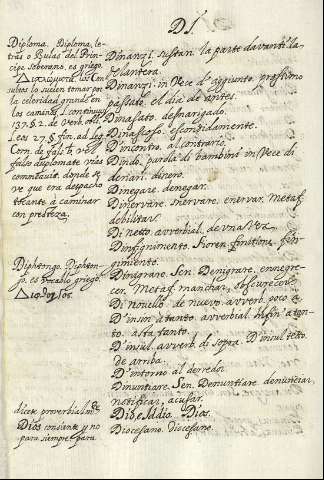 DI.
Diploma. Diploma, le-
tras o Bulas del Prin-
cipe soberano, es griego.
los Con
sultos lo suelen tomar por
la celeridad grande en
los caminos. l. continuus
137. §. 2. de verb. obl.
Leas 27. §. fin. ad leg.
Corn. de fals. ib. vel
falso diplomate vias
commeavit. donde se
ve que era despacho
tocante a caminar
con presteza.
Diphtongo. Diphton-
go, es vocablo griego.
dicese proverbialm.te
Dios consiente y no
para siempre
Dinanzi. sustan. la parte davanti la
delantera.
Dinanzi. in vece d' aggiunto, prossimo
passato. el dia de antes.
Dinasato. desnarigado.
Dinascoso. escondidamente.
Dincontro. al contrario.
Dindo. parola di bambini in vece di
denari. dinero.
Dinegare. denegar.
Dinervare. snervare. enervar. Metaf.
debilitar.
Di netto. avverbial. de una vez
Dinfignimento. Fioren. fintione. fin-
gimiento.
Dinigrare. Sen. Denigrare. ennegre-
cer. Metaf. manchar, obscurecer.
Di novello. de nuevo. avverb. poco è.
D' insin a tanto. avverbial. Infin' a tan-
to. asta tanto.
D' insul. avverb. di sopra. D' insul tetto.
de arriba.
D' intorno. al derredor.
Dinuntiare. Sen. Denuntiare. denunciar,
notificar, acusar.
Dio, e Iddio. Dios.
Diocesano. diocesano.